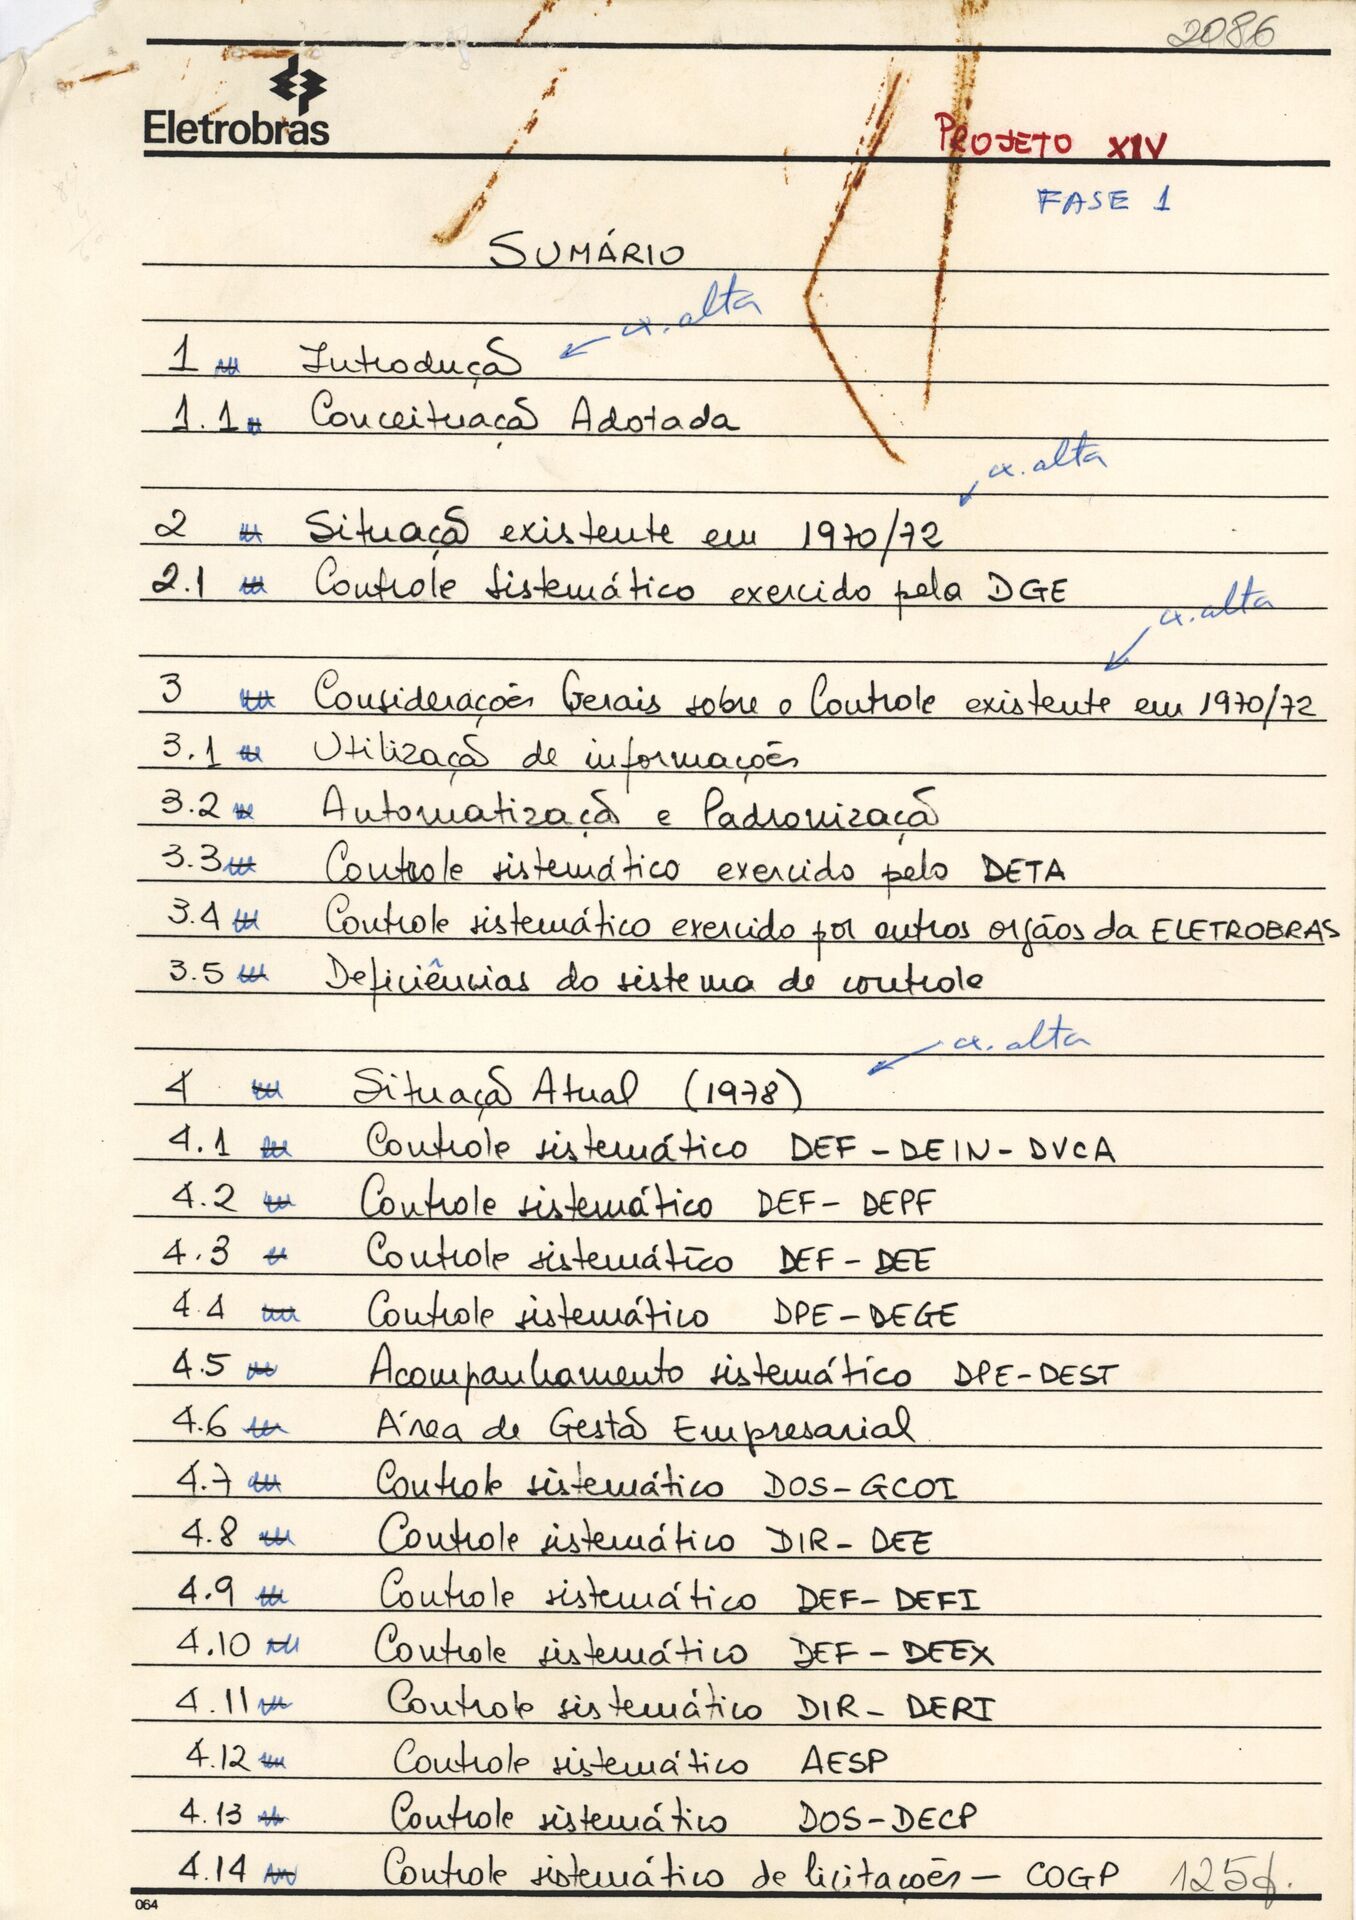 2086
Eletrobras
PROJETO XIV
FASE 1
SUMÁRIO
cx. alta
1 Introdução
1.1 Conceituação Adotada
cx. alta
2 Situação existente em 1970/72
2.1 Controle sistemático exercido pela DGE
cx. alta
3 Considerações Gerais sobre o Controle existente em 1970/72
3.1 Utilização de informações
3.2 Automatização e Padronização
3.3 Controle sistemático exercido pelo DETA
3.4 Controle sistemático exercido por outros orgãos da ELETROBRAS
3.5 Deficiências do sistema de controle
cx. alta
4 Situação Atual (1978)
4.1 Controle sistemático DEF - DEIN - DVCA
4.2 Controle sistemático DEF - DEPF
4.3 Controle sistemático DEF - DEE
4.4 Controle sistemático DPE - DEGE
4.5 Acompanhamento sistemático DPE - DEST
4.6 Área de Gestão Empresarial
4.7 Controle sistemático DOS - GCOI
4.8 Controle sistemático DIR - DEE
4.9 Controle sistemático DEF - DEFI
4.10 Controle sistemático DEF - DEEX
4.11 Controle sistemático DIR - DERI
4.12 Controle sistemático AESP
4.13 Controle sistemático DOS - DECP
4.14 Controle sistemático de licitações - COGP 125f.
064